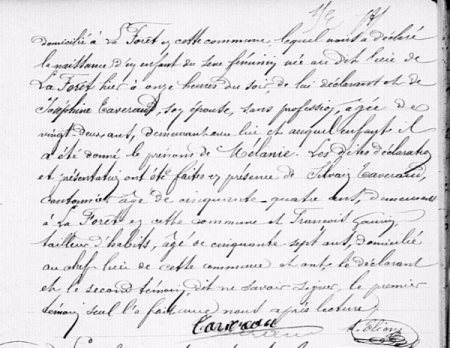 domicilié à La Forêt en cette commune, lequel nous a déclaré
la naissance d'un enfant du sexe féminin née au dit lieu de
La Forêt hier à onze heures du soir, de lui déclarant et de
Joséphine Taveraud, son épouse, sans profession, âgée de
vingt deux ans, demeurant au lieu et auquel enfant il
a été donné le prénom de Mélanie. Les dites déclaration
et présentation ont été faites en présence de Silvain Taveraud,
cantonnier, âgé de cinquante-quatre ans, demeurant
à La Forêt en cette commune et François
tailleur d'habits, âgé de cinquante sept ans, domicilié
au chef lieu de cette commune et ont, le déclarant
et le second témoin, dit ne savoir signer, le premier
témoin seul l'a fait avec nous après lecture
Taveraud